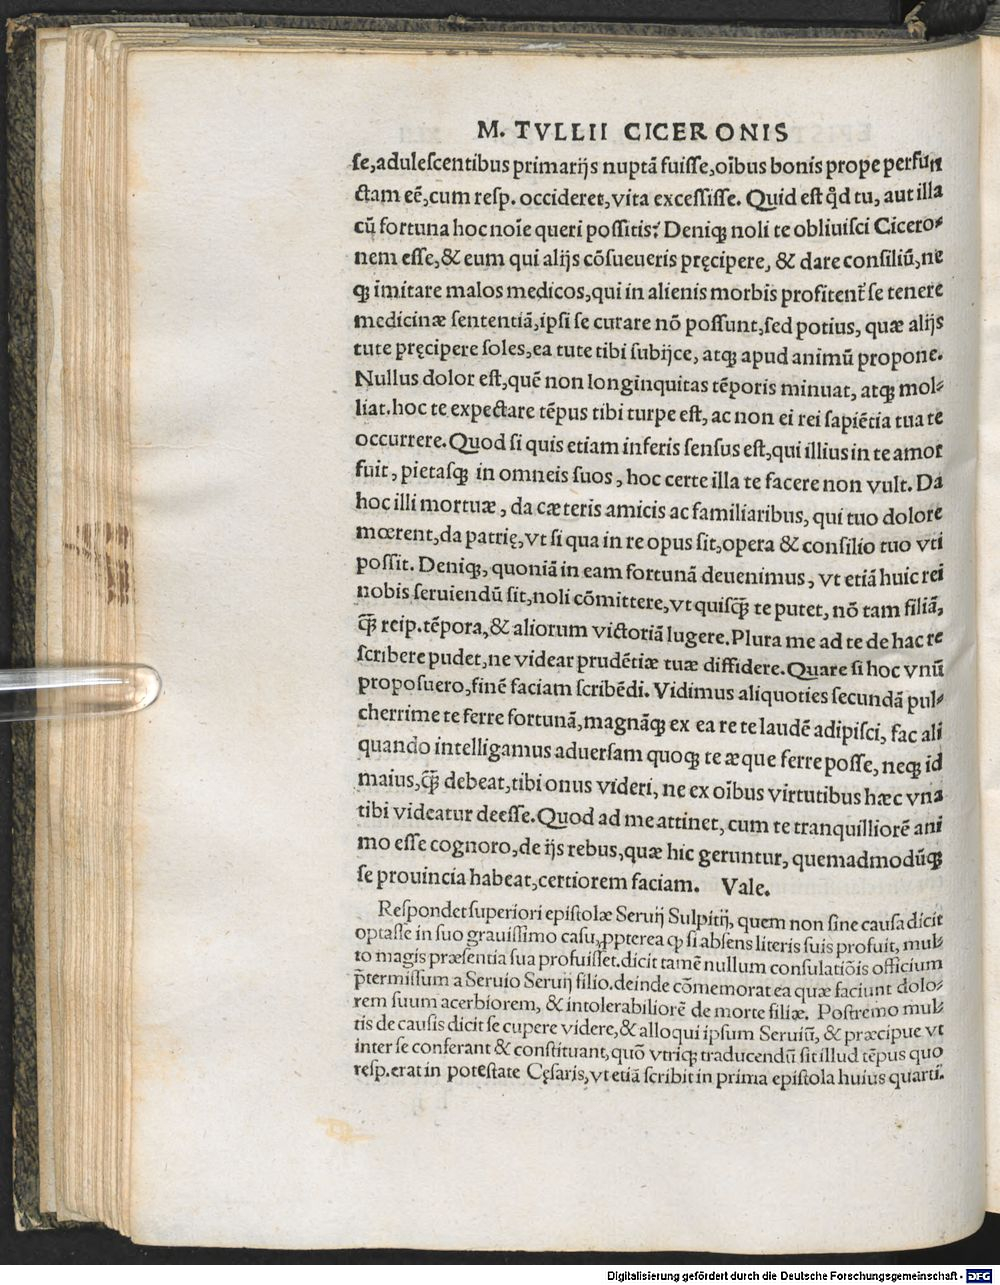 M. TVLLII CICERONIS
ſe,aduleſcentibus primarijs nuptā fuiſſe,oībus bonis prope perfun
ctam eē,cum reſp. occideret,vita exceſſiſſe. Quid eſt qđ tu, aut illa
cū fortuna hoc noīe queri poſſitis? Deniqꝫ noli te obliuiſci Cicero⸗
nem eſſe,& eum qui alijs cōſueueris pręcipere, & dare conſiliū,ne
qꝫ imitare malos medicos,qui in alienis morbis profitent᷑ ſe tenere
medicinæ ſententiā,ipſi ſe curare nō poſſunt,ſed potius, quæ alijs
tute pręcipere ſoles,ea tute tibi ſubijce, atqꝫ apud animū propone.
Nullus dolor eſt,quē non longinquitas tēporis minuat, atqꝫ mol⸗
liat.hoc te expectare tēpus tibi turpe eſt, ac non ei rei ſapiētia tua te
occurrere.Quod ſi quis etiam inferis ſenſus eſt,qui illius in te amor
fuit, pietaſqꝫ in omneis ſuos, hoc certe illa te facere non vult. Da
hoc illi mortuæ, da cæteris amicis ac familiaribus, qui tuo dolore
mœrent,da patrię,vt ſi qua in re opus ſit,opera & conſilio tuo vti
poſſit. Deniqꝫ, quoniā in eam fortunā deuenimus, vt etiā huic rei
nobis ſeruiendū ſit,noli cōmittere,vt quiſqꝫ̄ te putet, nō tam filiā,
qꝫ̄ reip.tēpora,& aliorum victoriā lugere.Plura me ad te de hac re
ſcribere pudet,ne videar prudētiæ tuæ diffidere.Quare ſi hoc vnū
propoſuero,finē faciam ſcribēdi. Vidimus aliquoties ſecundā pul⸗
cherrime te ferre fortunā,magnāqꝫ ex ea re te laudē adipiſci, fac ali
quando intelligamus aduerſam quoqꝫ te æque ferre poſſe, neqꝫ id
maius,qꝫ̄ debeat,tibi onus videri, ne ex oībus virtutibus hæc vna
tibi videatur deeſſe.Quod ad me attinet, cum te tranquilliorē ani
mo eſſe cognoro,de ijs rebus,quæ hic geruntur, quemadmodūqꝫ
ſe prouincia habeat,certiorem faciam. Vale.
Reſpondet ſuperiori epiſtolæ Seruij Sulpitij, quem non ſine cauſa dicit
optaſſe in ſuo grauiſſimo caſu,ꝓpterea ꝙ ſi abſens literis ſuis profuit, mul⸗
to magis præſentia ſua profuiſſet.dicit tamē nullum conſulatiōis officium
p̄termiſſum a Seruio Seruij filio.deinde cōmemorat ea quæ faciunt dolo⸗
rem ſuum acerbiorem, & intolerabiliorē de morte filiæ. Poſtremo mul⸗
tis de cauſis dicit ſe cupere videre,& alloqui ipſum Seruiū, & præcipue vt
inter ſe conferant & conſtituant,quō vtriqꝫ traducendū ſit illud tēpus quo
reſp.erat in poteſtate Cęſaris,vt etiā ſcribit in prima epiſtola huius quarti.
Digitalisierung gefördert durch die Deutsche Forschungsgemeinschaft - DFG